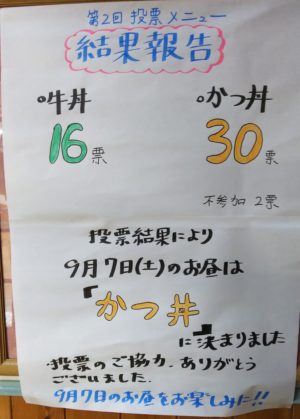 第2回 投票メニュー
結果報告
○牛丼 ○かつ丼
16票 30票
不参加 2票
投票結果により
9月7日(土)のお昼は
「かつ丼」
に決まりました
投票のご協力、ありがとう
ございました。
9月7日のお昼をお楽しみに!!